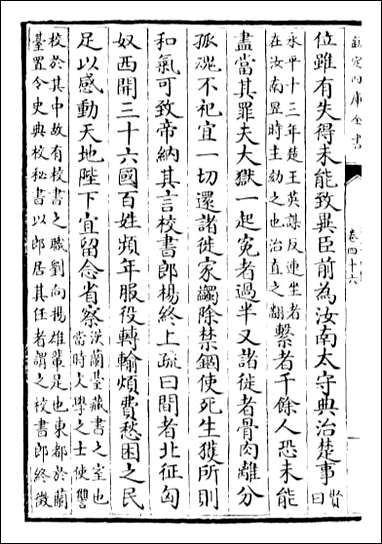 欽定四庫全書
卷四十六
位雖有失得未能致異臣前為汝南太守典治楚事賢曰
永平十三年楚王英謀反連坐者
在汝南昱時主劾之也治直之翻
繫者千餘人恐未能
盡當其罪夫大獄一起冤者過半又諸徙者骨肉離分
孤魂不祀宜一切還諸徙家蠲除禁錮使死生獲所則
和氣可致帝納其言校書郎楊終上疏曰間者北征匈
奴西開三十六國百姓頻年服役轉輸煩費愁困之民
足以感動天地陛下宜留念省察
漢蘭臺藏書之室也
當時文學之士使讐
校於其中故有校書之職劉向揚雄輩是也東都於蘭
臺置令史典校秘書以郎居其任者謂之校書郎終徴